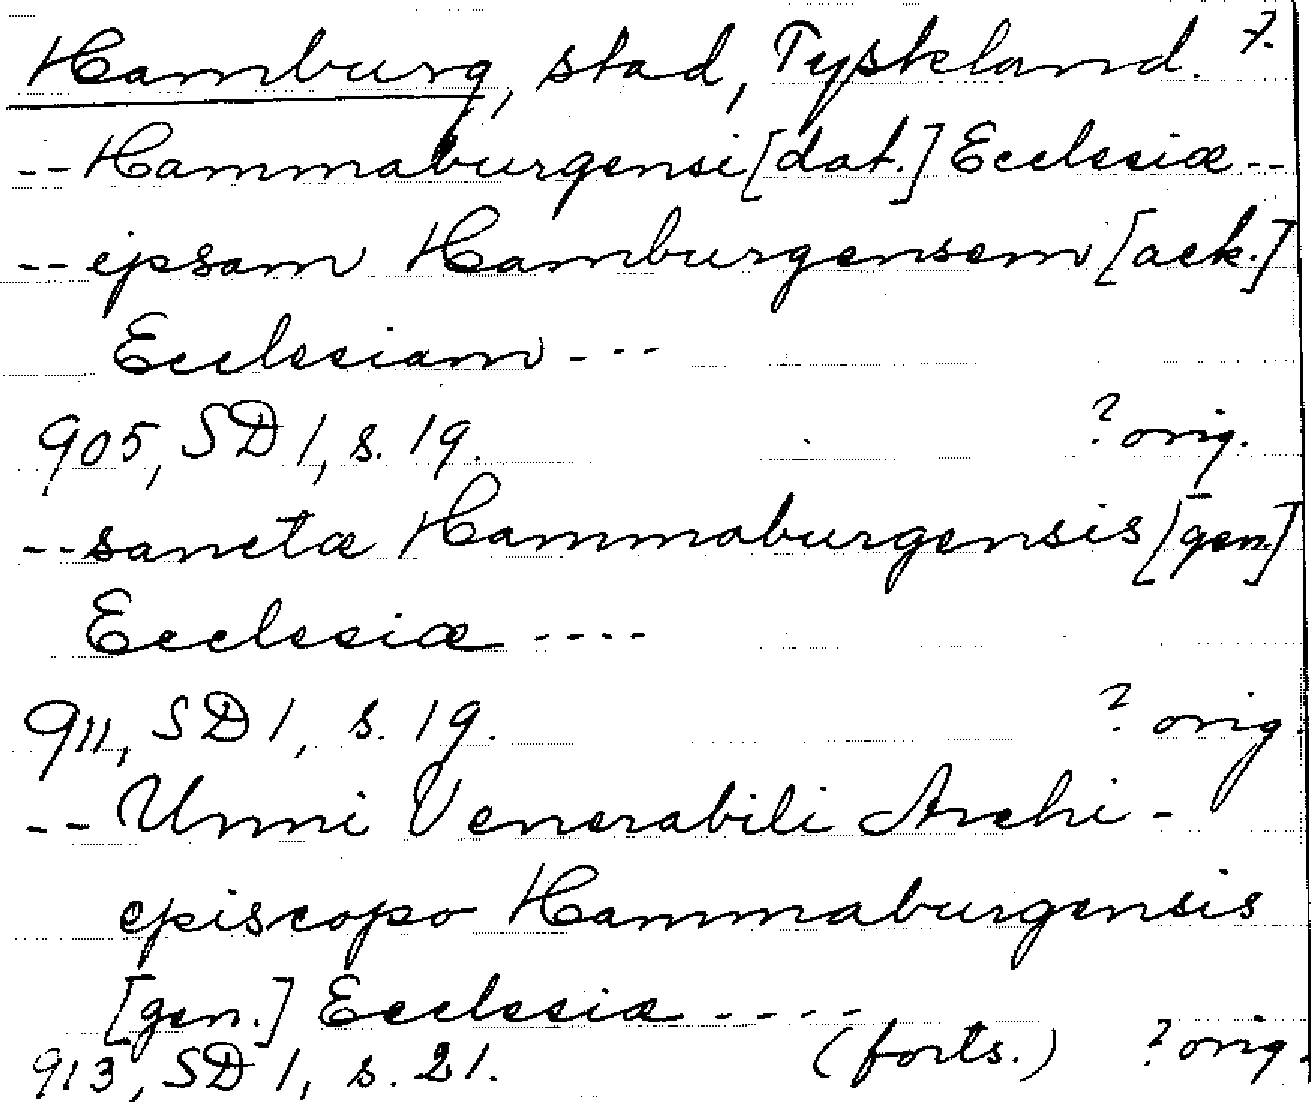 Hamburg, stad, Tyskland. 7.
-- Hammaburgensi [dat.] Ecclesiæ --
-- ipsam Hamburgensem [ack.]
Ecclesiam ---
905, SD 1, s. 19. ? orig.
-- sanctæ Hammaburgensis [gen.]
Ecclesiæ ----
911, SD 1, s. 19. ? orig.
-- Unni Venerabili Archi-
episcopo Hammaburgensis
[gen.] Ecclesiæ ----
913, SD 1, s. 21. (forts.) ? orig.